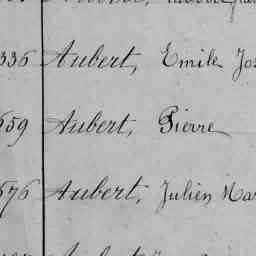 336 Aubert, Emile Jos
659 Aubert, Pierre
676 Aubert, Julien Mar